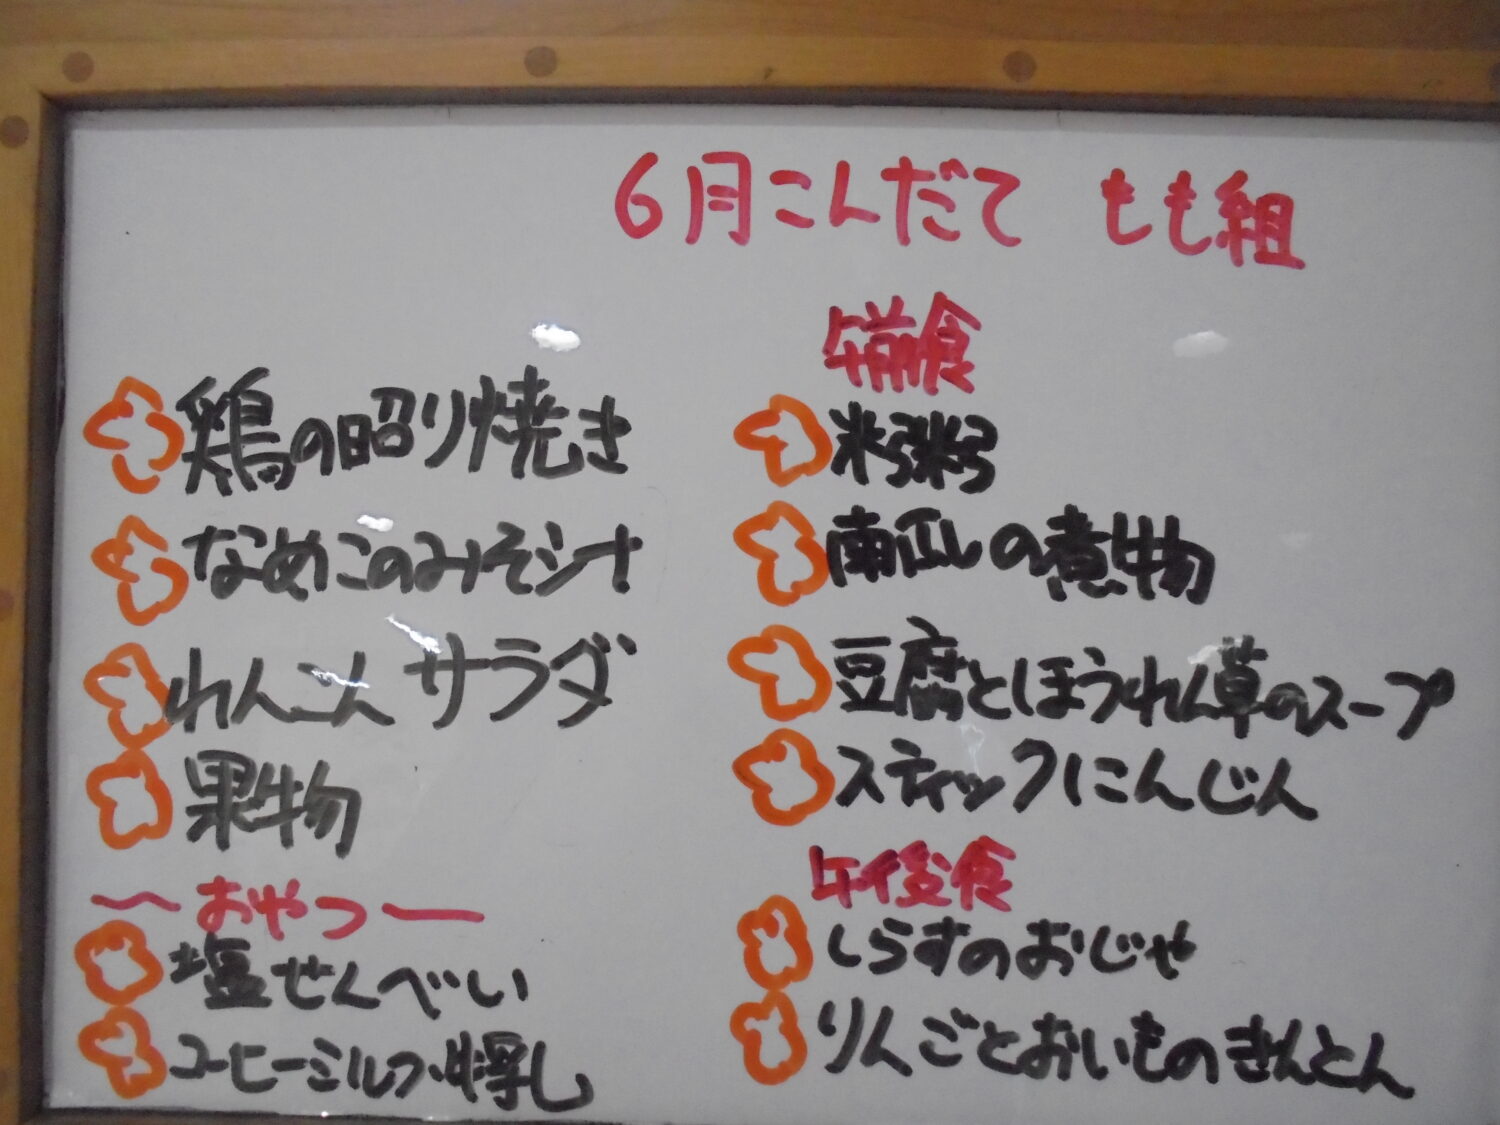 6月こんだて もも組
鶏の照り焼き
なめこのみそ汁
れんこんサラダ
果物
～おやつ～
塩せんべい
コーヒーミルク、牛乳
午前食
粥
南瓜の煮物
豆腐とほうれん草のスープ
スティックにんじん
午後食
しらすのおじや
りんごとおいものきんとん